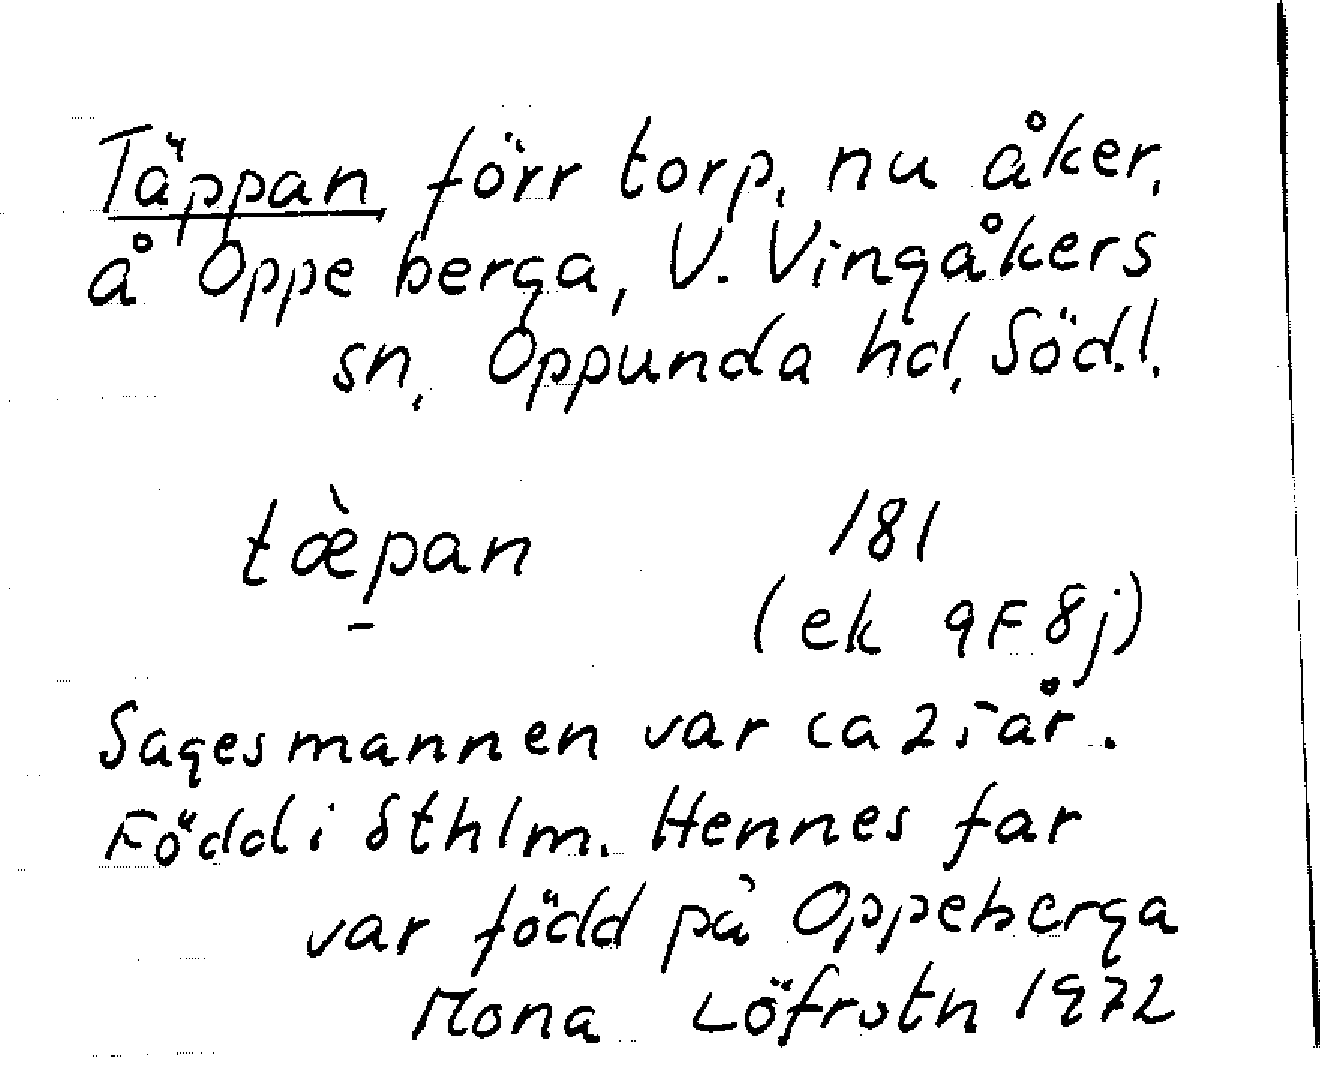 Täppan förr torp, nu åker,
å Oppeberga, V. Vingåkers
sn, Oppunda hd, Söd.l.
tæ̀pan 181
(ek 9F8j)
Sagesmannen var ca 25 år.
Född i Sthlm. Hennes far
var född på Oppeberga
Mona Löfrotn 1972